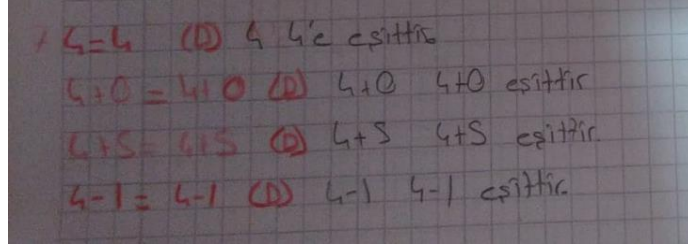 4=4 (D) 4 4'e eşittir
4+0=4+0 (D) 4+0 4+0 eşittir
4+5=4+5 (D) 4+5 4+5 eşittir.
4-1=4-1 (D) 4-1 4-1 eşittir.